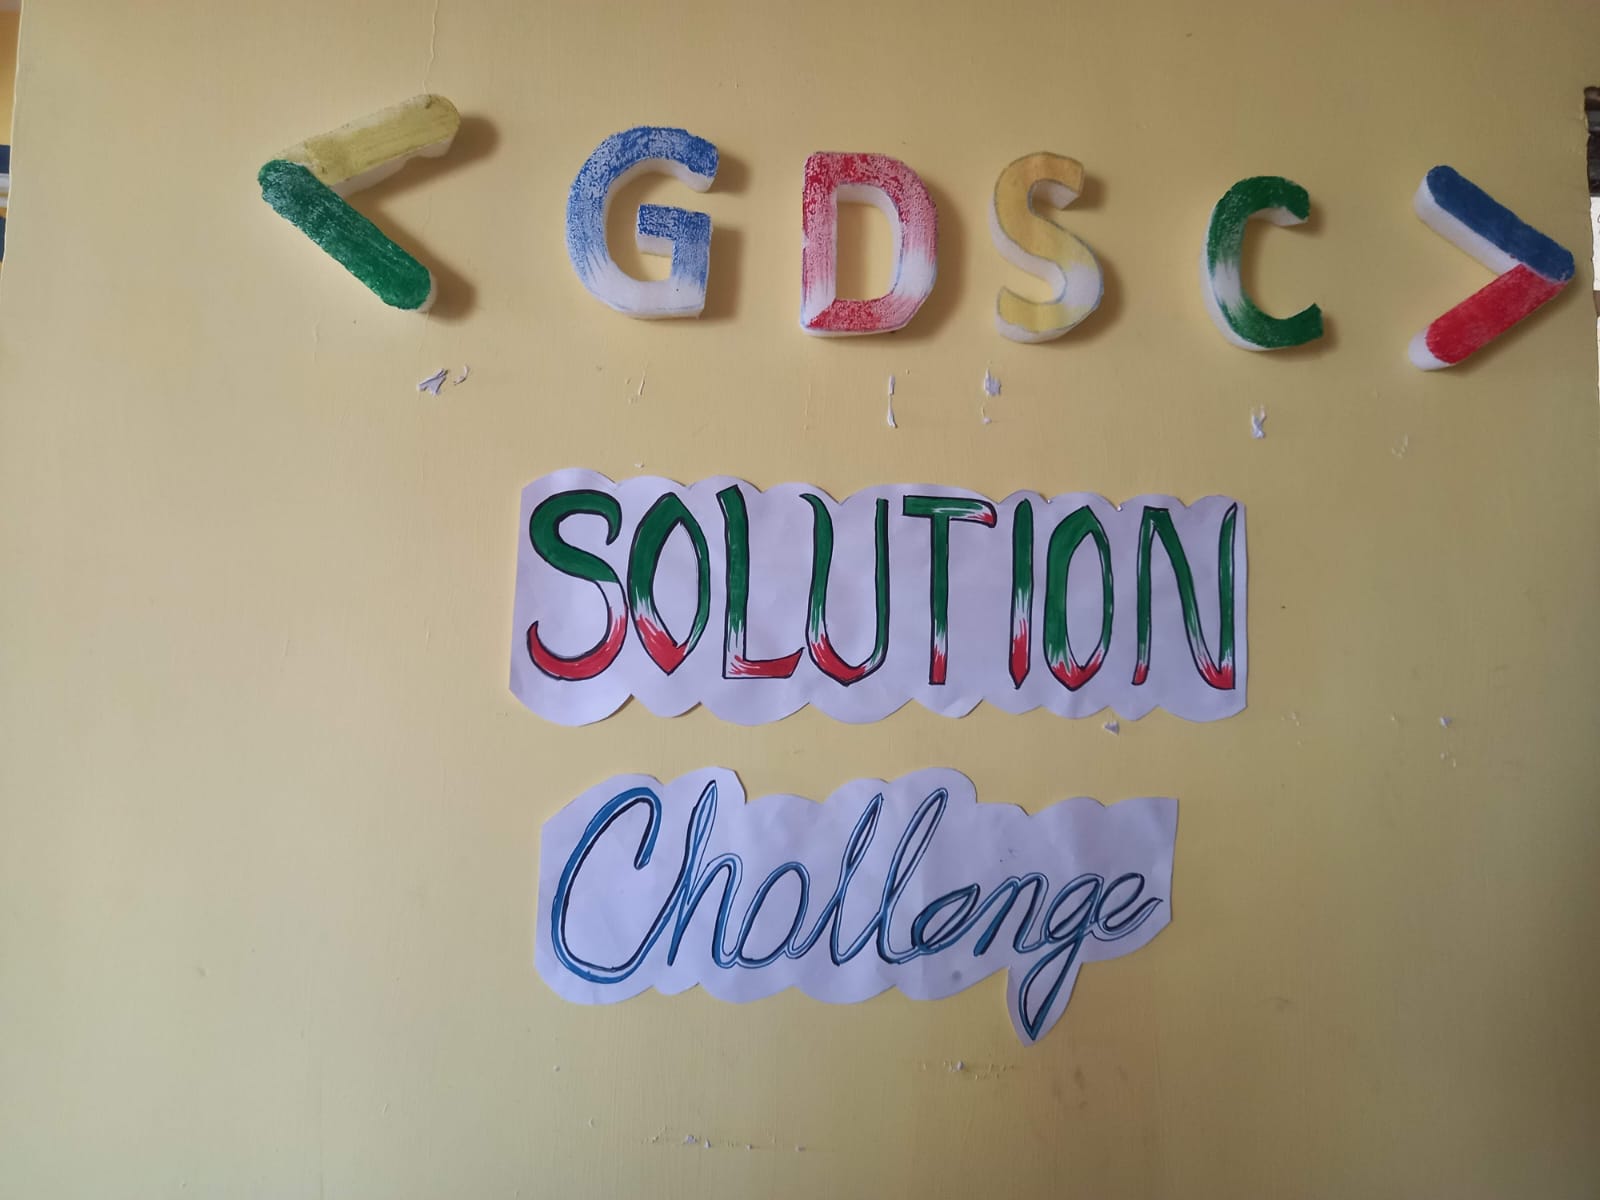 <GDSC>
SOLUTION
Challenge